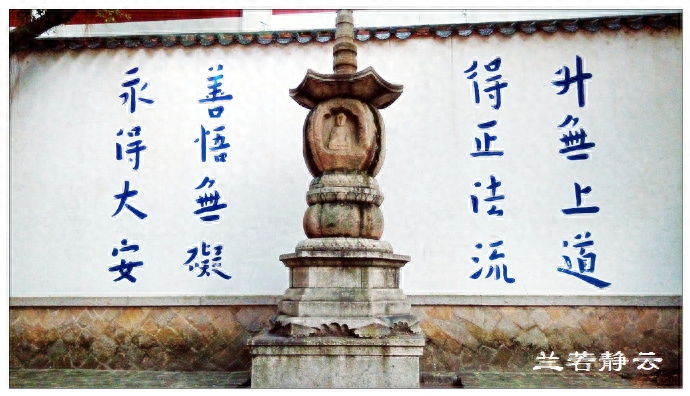 升無上道
得正法流
善悟無礙
永得大安
兰若静云